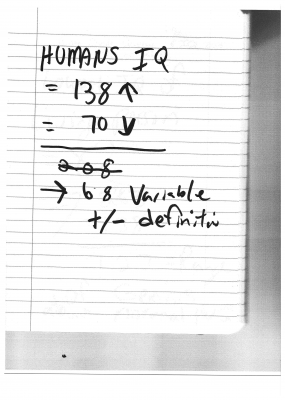 HUMANS IQ
= 138 ↑
= 70 ↓
208
→ 68 Variable
+/- definitiv